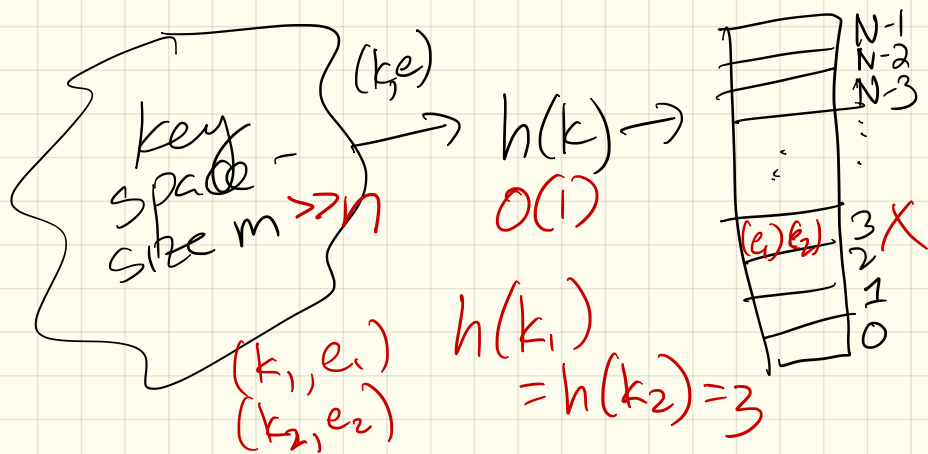 key
space -
size m >> n
(k,e)
h(k)
O(1)
N-1
N-2
N-3
(e₁)(e₂)
3 X
2
1
0
(k₁, e₁)
(k₂, e₂)
h(k₁)
= h(k₂) = 3